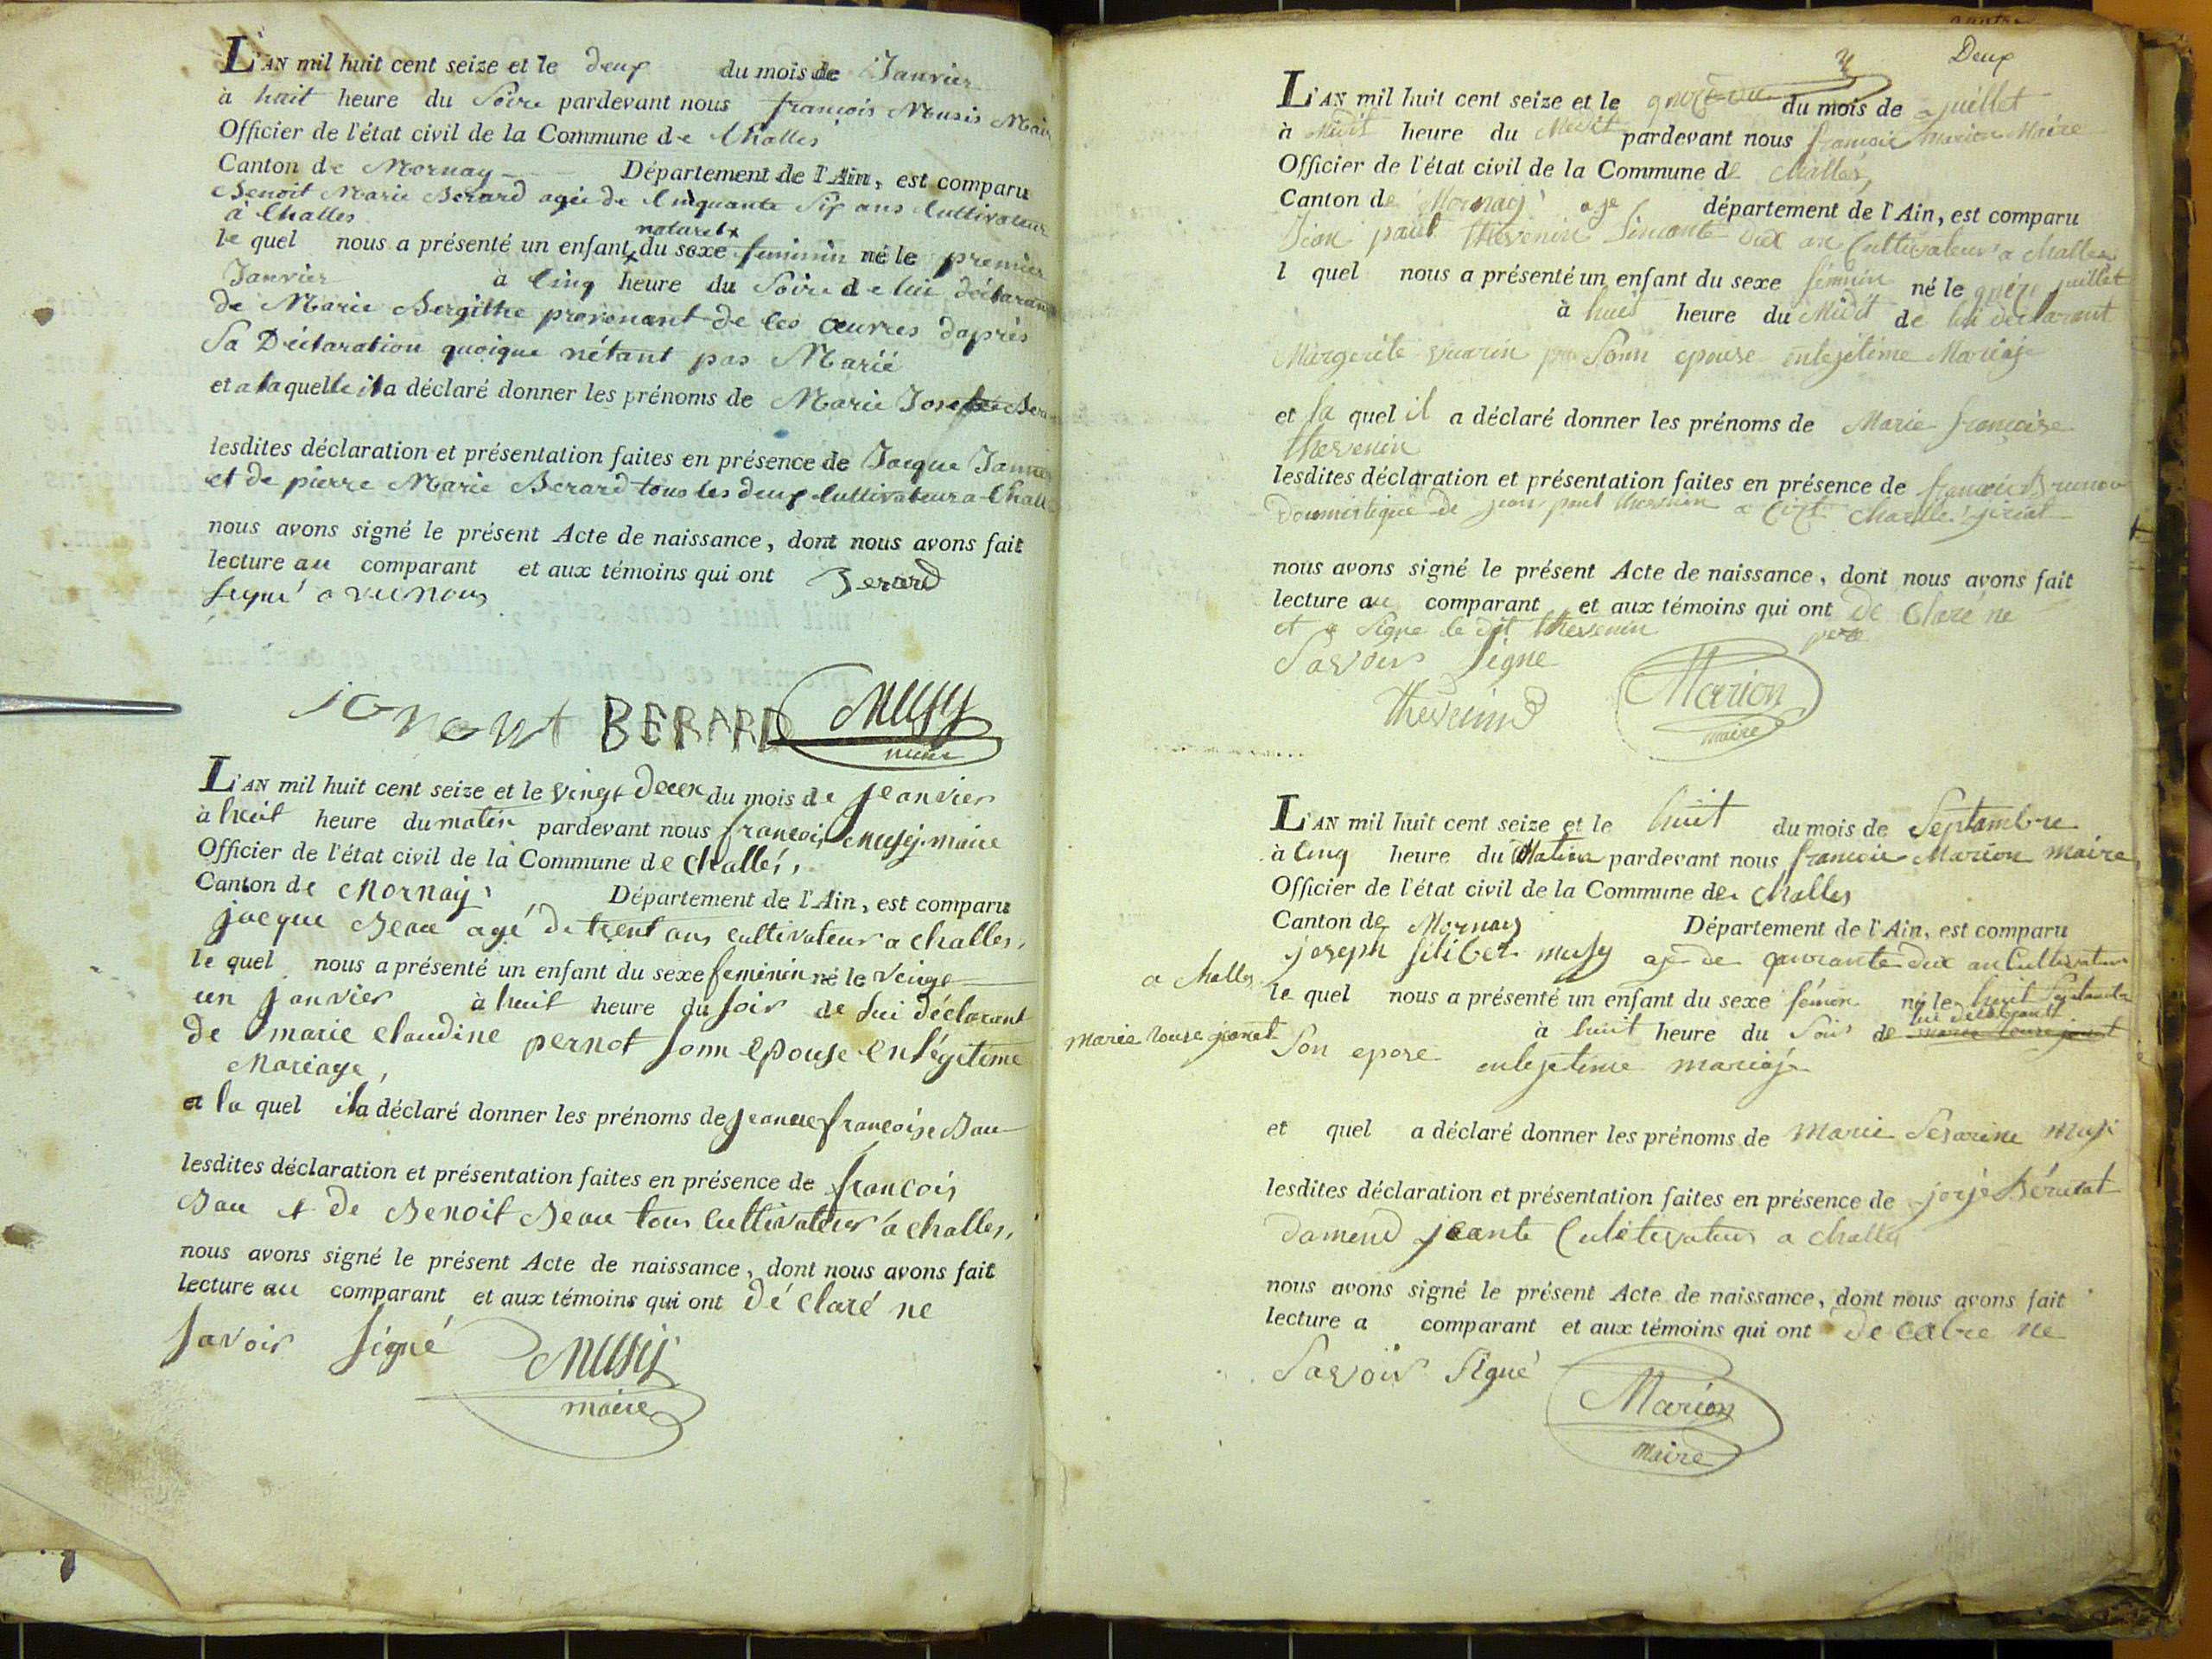 L'AN mil huit cent seize et le deux du mois de Janvier
à huit heure du Soire pardevant nous françois Musis Mair
Officier de l'état civil de la Commune de Challes
Canton de Mornay Département de l'Ain, est comparu
Benoit Marie Berard agée de Cinquante Six ans Cultivateur
à Challes
naturel x
le quel nous a présenté un enfant x du sexe feminin né le premier
Janvier à Cinq heure du Soire de lui déclarant
de Marie Bergithe provenant de ces œuvres daprès
Sa Déclaration quoique nétant pas Marié
et a laquelle il a déclaré donner les prénoms de Marie Josephe Bera
lesdites déclaration et présentation faites en présence de Jacque
et de pierre Marie Berard tous les deux Cultivateur a Chall
nous avons signé le présent Acte de naissance, dont nous avons fait
lecture au comparant et aux témoins qui ont Berard
signé avec nous
BERARD Musy
maire
L'AN mil huit cent seize et le vingt deux du mois de jeanvier
à huit heure du matin pardevant nous francois Musy maire
Officier de l'état civil de la Commune de challes,
Canton de Mornay Département de l'Ain, est comparu
jacque Beau agé de trent ans cultivateur a challes,
le quel nous a présenté un enfant du sexe feminin né le veingt
un janvier à huit heure du soir de lui déclarant
de marie claudine pernot sonn epouse en légitime
Mariage,
et la quel il a déclaré donner les prénoms de jeanne françoise Bau
lesdites déclaration et présentation faites en présence de françois
Bau et de Benoit Beau tous cultivateur a challes,
nous avons signé le présent Acte de naissance, dont nous avons fait
lecture au comparant et aux témoins qui ont dé claré ne
savoir signé Musy
maire
Deux
L'AN mil huit cent seize et le du mois de juillet
à Midit heure du Midit pardevant nous francois Marion Maire
Officier de l'état civil de la Commune de Challes,
Canton de Mornay aje département de l'Ain, est comparu
Jean paul thevenin Sincante dix an Cultivateur a Challes
l quel nous a présenté un enfant du sexe féminin né le juillet
à huit heure du Midit de lui déclarant
Margerite vuarin Sonn epouse enlejitime Mariaje
et la quel il a déclaré donner les prénoms de Marie françoise
thevenin
lesdites déclaration et présentation faites en présence de francois
Doumestique de jean paul thevenin
nous avons signé le présent Acte de naissance, dont nous avons fait
lecture au comparant et aux témoins qui ont de Claré ne
et a signe le dit thevenin pere
Savoir signe
thevenin Marion
maire
L'AN mil huit cent seize et le huit du mois de Septembre
à Cinq heure du Matin pardevant nous francois Marion maire
Officier de l'état civil de la Commune de Challes
Canton de Mornay Département de l'Ain, est comparu
joseph filibert musy aje de quarante dux an Cultivateur
a Challes
le quel nous a présenté un enfant du sexe fémin né le huit Septembre
lui déclarant
à huit heure du Soir de marie louise janet
marie louise janet
Son epose enlejetime mariaje
et quel a déclaré donner les prénoms de Marie Sesarine Musi
lesdites déclaration et présentation faites en présence de jorje
jeante Culetivateur a challes
nous avons signé le présent Acte de naissance, dont nous avons fait
lecture a comparant et aux témoins qui ont ne
Savoir Signé Marion
maire